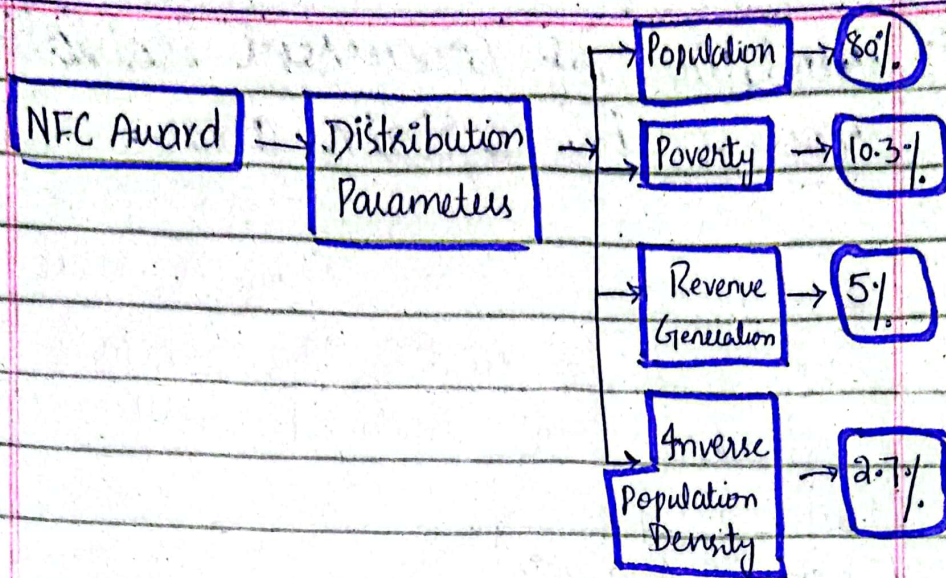 NFC Award
Distribution
Parameters
Population
80%
Poverty
10.3%
Revenue
Generation
5%
Inverse
Population
Density
2.7%